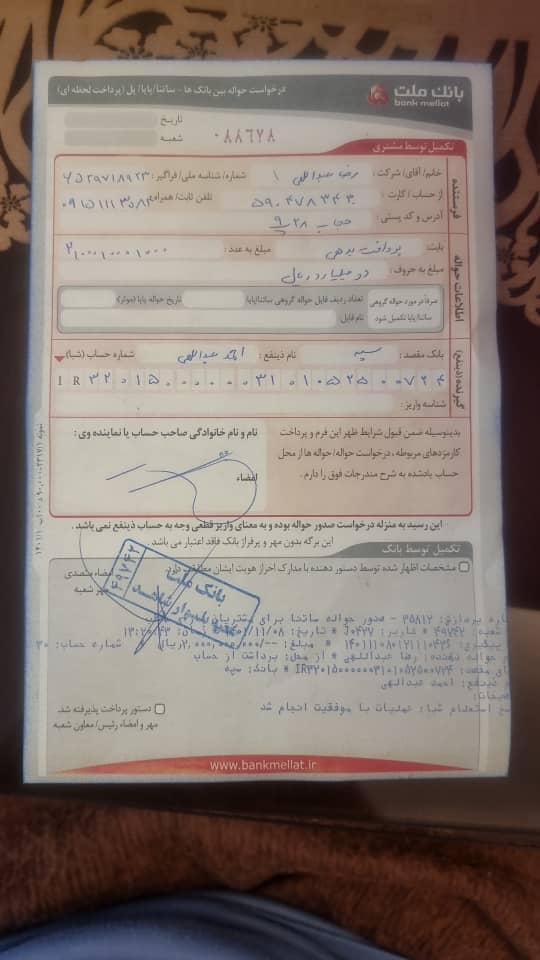 بانک ملت
bank mellat
درخواست حواله بین بانک ها - ساتنا/پایا/ پل (پرداخت لحظه ای)
تاریخ :
شعبه :
۰۸۸۶۲۸
تکمیل توسط مشتری
فرستنده
خانم/ آقای/ شرکت : رضا عبداللهی
شماره/ شناسه ملی/ فراگیر :
از حساب / کارت :
تلفن ثابت/ همراه :
آدرس و کد پستی : حجاب ۲۸
اطلاعات حواله
بابت : پرداخت بدهی
مبلغ به عدد : ۲/۰۰۰/۰۰۰/۰۰۰
مبلغ به حروف : دو میلیارد ریال
صرفاً در مورد حواله گروهی ساتنا/پایا تکمیل شود
تعداد ردیف فایل حواله گروهی ساتنا/پایا:
تاریخ حواله پایا (موثر):
نام فایل :
گیرنده (ذینفع)
بانک مقصد : سپه
نام ذینفع : احمد عبداللهی
شماره حساب (شبا) :
IR ۳۲۰۱۵۰۰۰۰۰۰۳۱۰۱۰۵۲۵۰۰۷۲۴
شناسه واریز :
بدینوسیله ضمن قبول شرایط ظهر این فرم و پرداخت
کارمزدهای مربوطه ، درخواست حواله/ حواله ها از محل
حساب یادشده به شرح مندرجات فوق را دارم .
نام و نام خانوادگی صاحب حساب یا نماینده وی :
امضاء
این رسید به منزله درخواست صدور حواله بوده و به معنای واریز قطعی وجه به حساب ذینفع نمی باشد .
این برگه بدون مهر و پرفراژ بانک فاقد اعتبار می باشد .
تکمیل توسط بانک
مشخصات اظهار شده توسط دستور دهنده با مدارک احراز هویت ایشان مطابقت دارد.
امضاء متصدی
مهر شعبه
بانک ملت
۴۹۷۴۲
پردازی: ۳۵۸۱۲ - صدور حواله ساتنا برای مشتریان
شعبه: ۴۹۷۴۲ * کاربر: J۰۴۲۷ * تاریخ: ۱۱/۰۸ زمان: ۱۳:۲۰
مبلغ: --/۲,۰۰۰,۰۰۰,۰۰۰ ریال شماره حساب:
حواله دهنده: رضا عبداللهی * از محل: برداشت از حساب
مقصد: IR۳۲۰۱۵۰۰۰۰۰۰۳۱۰۱۰۵۲۵۰۰۷۲۴ * بانک: سپه
ذینفع: احمد عبدالهی
استعلام شبا: عملیات با موفقیت انجام شد
دستور پرداخت پذیرفته شد.
مهر و امضاء رئیس/ معاون شعبه
www.bankmellat.ir